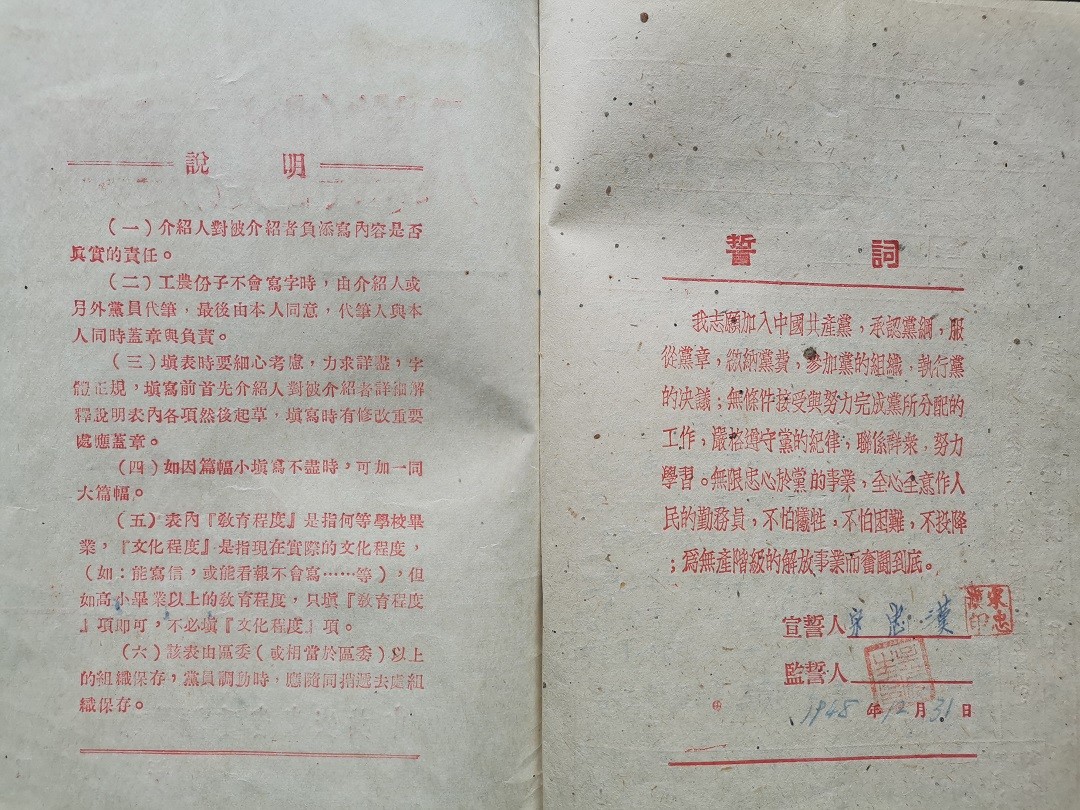 說明
（一）介紹人對被介紹者負添寫內容是否
眞實的責任。
（二）工農份子不會寫字時，由介紹人或
另外黨員代筆，最後由本人同意，代筆人與本
人同時蓋章與負責。
（三）塡表時要細心考慮，力求詳盡，字
體正規，塡寫前首先介紹人對被介紹者詳細解
釋說明表內各項然後起草，塡寫時有修改重要
處應蓋章。
（四）如因篇幅小塡寫不盡時，可加一同
大篇幅。
（五）表內『敎育程度』是指何等學校畢
業，『文化程度』是指現在實際的文化程度，
（如：能寫信，或能看報不會寫……等），但
如高小畢業以上的敎育程度，只塡『敎育程度
』項即可，不必塡『文化程度』項。
（六）該表由區委（或相當於區委）以上
的組織保存，黨員調動時，應隨同指過去處組
織保存。
誓詞
我志願加入中國共產黨，承認黨綱，服
從黨章，繳納黨費，參加黨的組織，執行黨
的决議；無條件接受與努力完成黨所分配的
工作，嚴格遵守黨的紀律，聯係群衆，努力
學習。無限忠心於黨的事業，全心全意作人
民的勤務員，不怕犧牲，不怕困難，不投降
；爲無產階級的解放事業而奮鬪到底。
宣誓人宋忠漢
宋忠漢印
監誓人
1948年12月31日